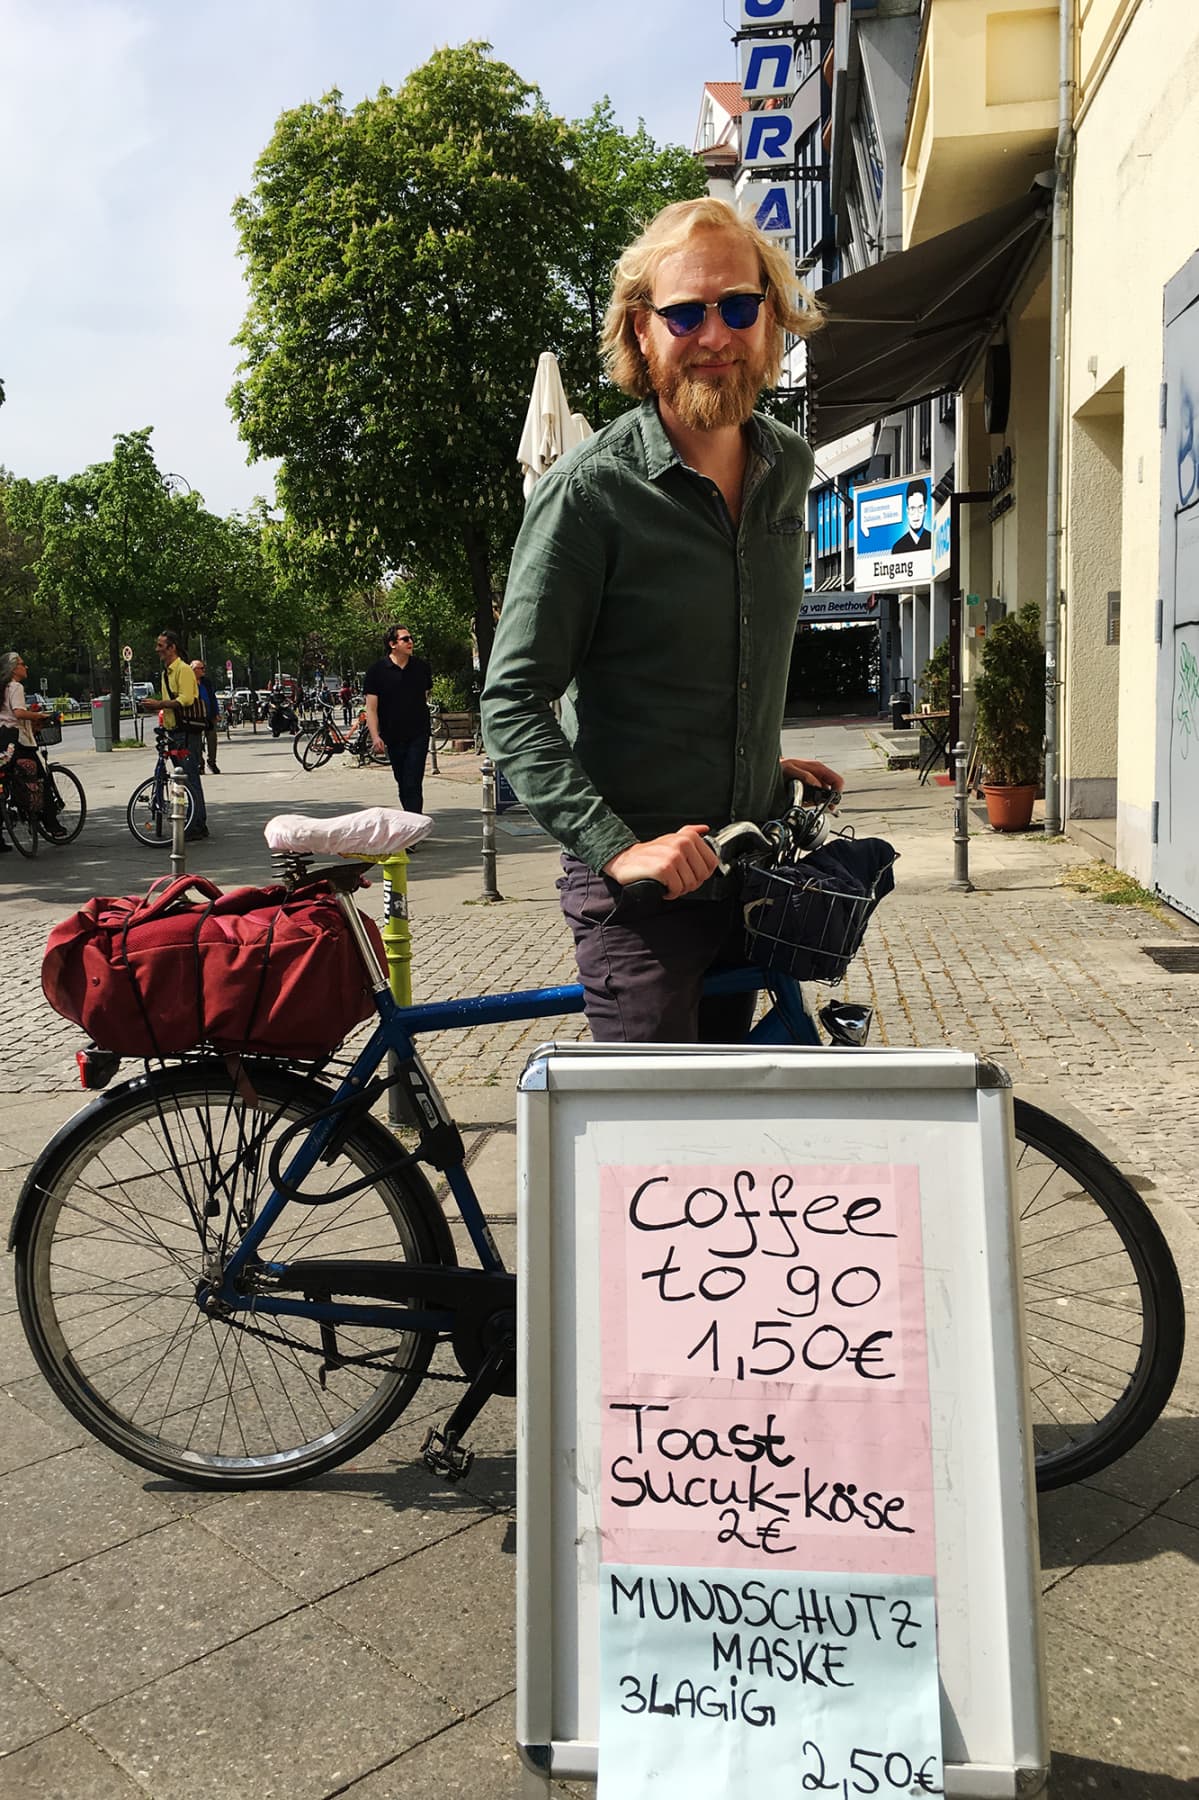 NRA
Willkommen
Zuhause,
Eingang
ig van Beethove
Coffee
to go
1,50€
Toast
Sucuk-käse
2€
MUNDSCHUTZ
MASKE
3LAGiG
2,50€